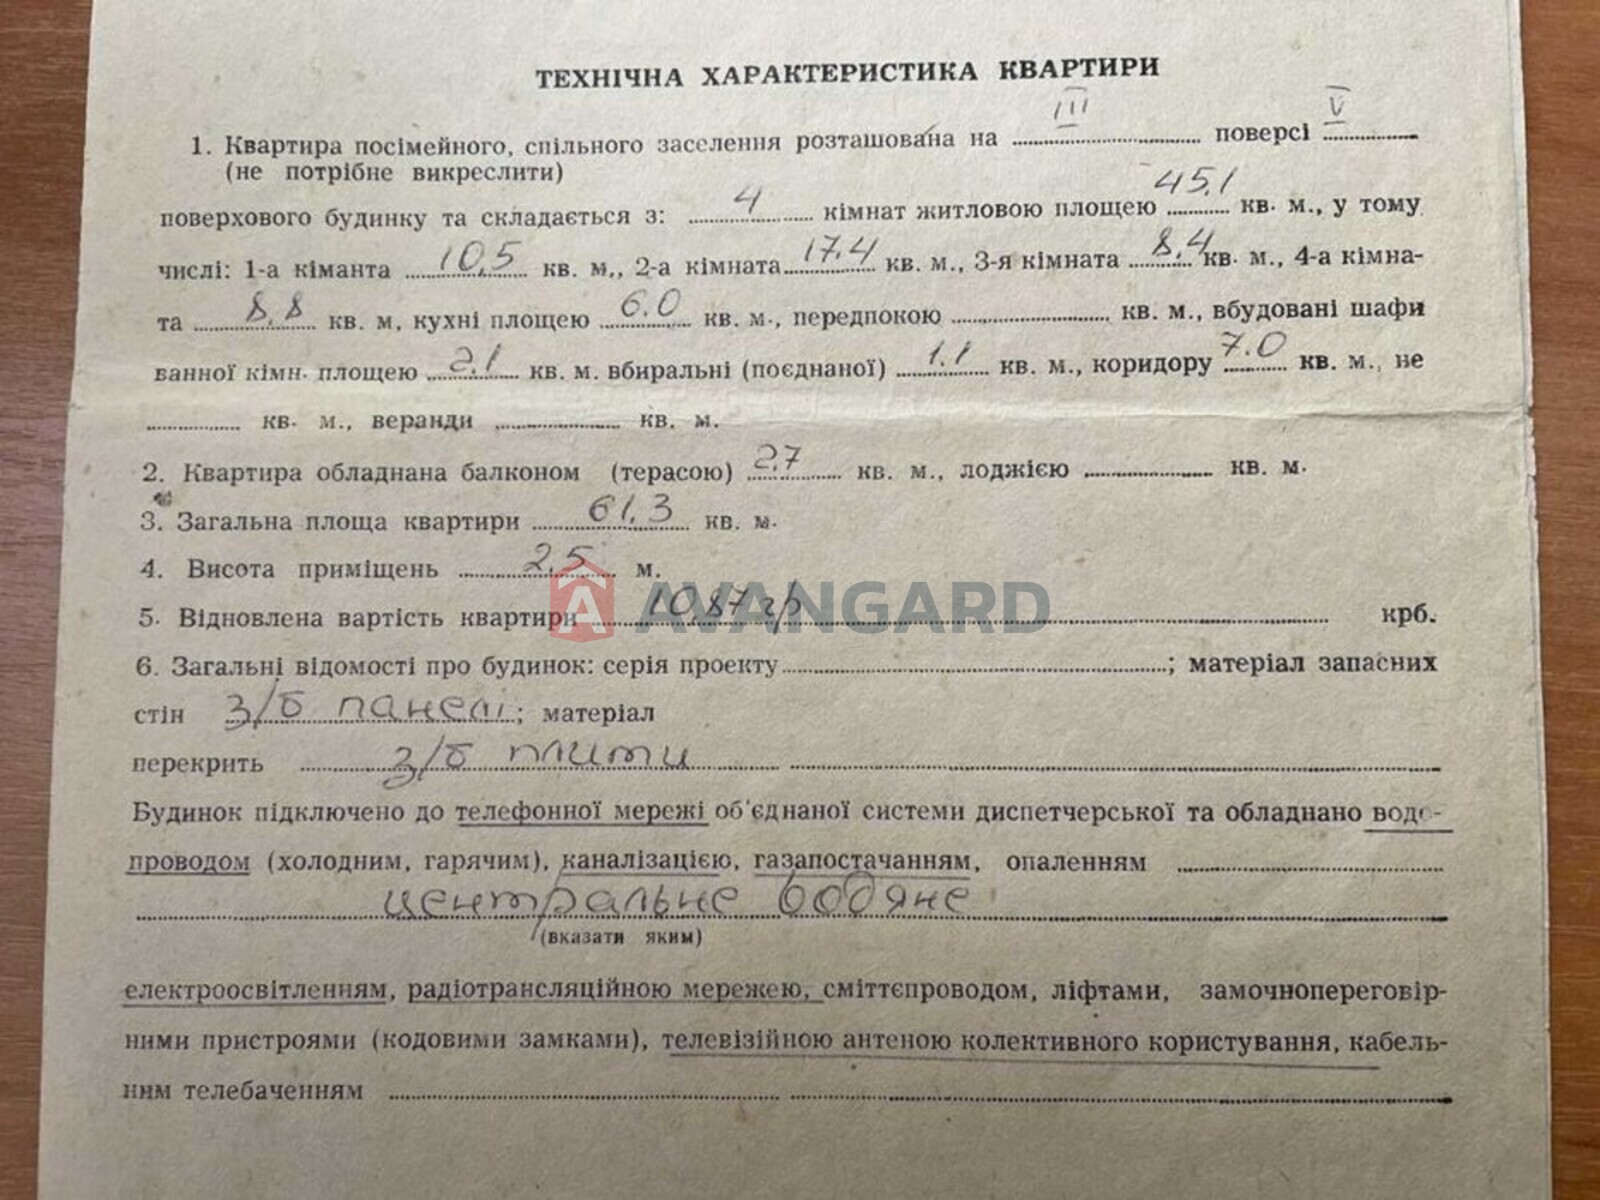 ТЕХНІЧНА ХАРАКТЕРИСТИКА КВАРТИРИ
1. Квартира посімейного, спільного заселення розташована на III поверсі V
(не потрібне викреслити)
поверхового будинку та складається з: 4 кімнат житловою площею 45.1 кв. м., у тому
числі: 1-а кіманта 10,5 кв. м., 2-а кімната 17.4 кв. м., 3-я кімната 8,4 кв. м., 4-а кімна-
та 8,8 кв. м, кухні площею 6.0 кв. м., передпокою кв. м., вбудовані шафи
ванної кімн. площею 2,1 кв. м. вбиральні (поєднаної) 1.1 кв. м., коридору 7.0 кв. м., не
кв. м., веранди кв. м.
2. Квартира обладнана балконом (терасою) 2,7 кв. м., лоджією кв. м.
3. Загальна площа квартири 61,3 кв. м.
4. Висота приміщень 2,5 м.
AVANGARD
5. Відновлена вартість квартири 1087 гр крб.
6. Загальні відомості про будинок: серія проекту ; матеріал запасних
стін з/б панелі; матеріал
перекрить з/б плити
Будинок підключено до телефонної мережі об'єднаної системи диспетчерської та обладнано водо-
проводом (холодним, гарячим), каналізацією, газапостачанням, опаленням
центральне водяне
(вказати яким)
електроосвітленням, радіотрансляційною мережею, сміттєпроводом, ліфтами, замочнопереговір-
ними пристроями (кодовими замками), телевізійною антеною колективного користування, кабель-
ним телебаченням